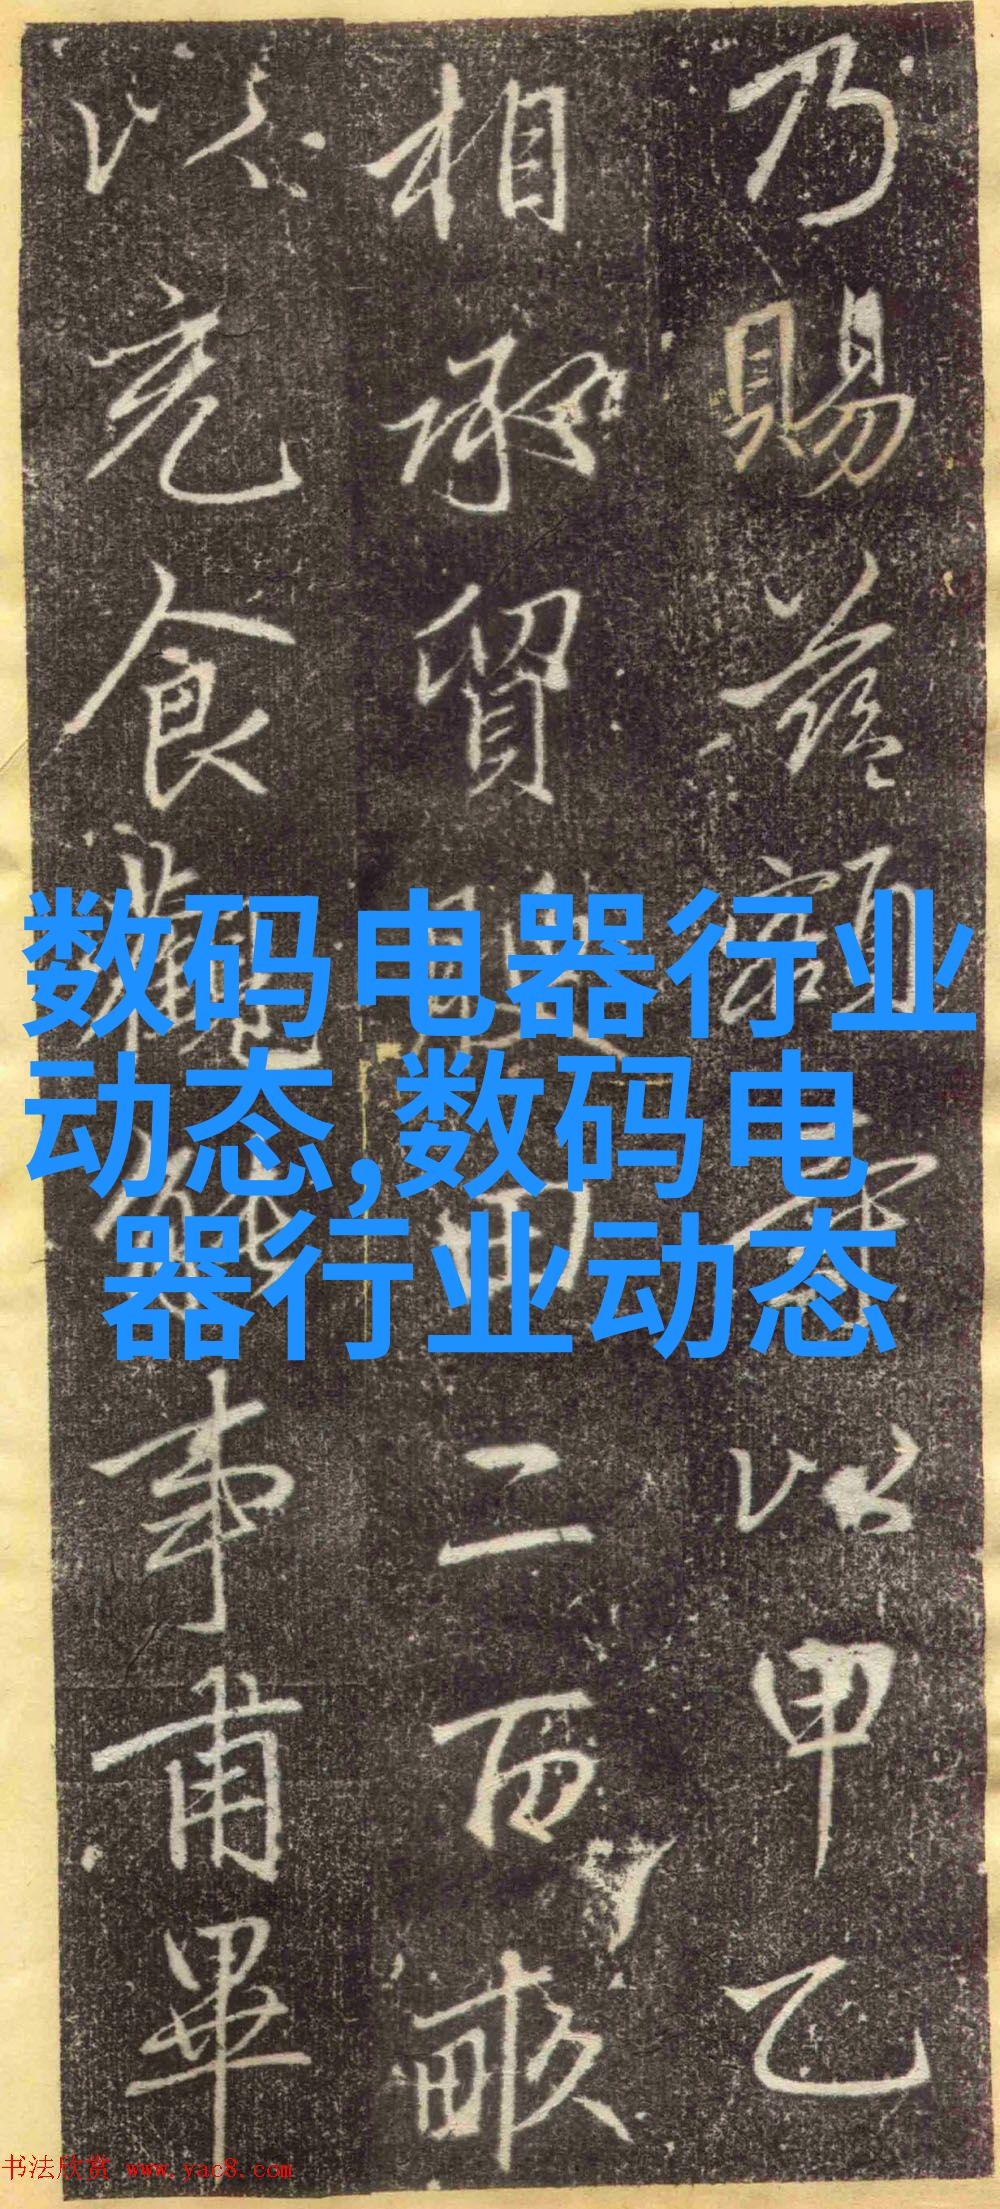 乃賜額以甲乙
相承貿田二百畝
以充食事甫畢
数码电器行业
动态,数码电
器行业动态
书法欣赏 www.yac8.com